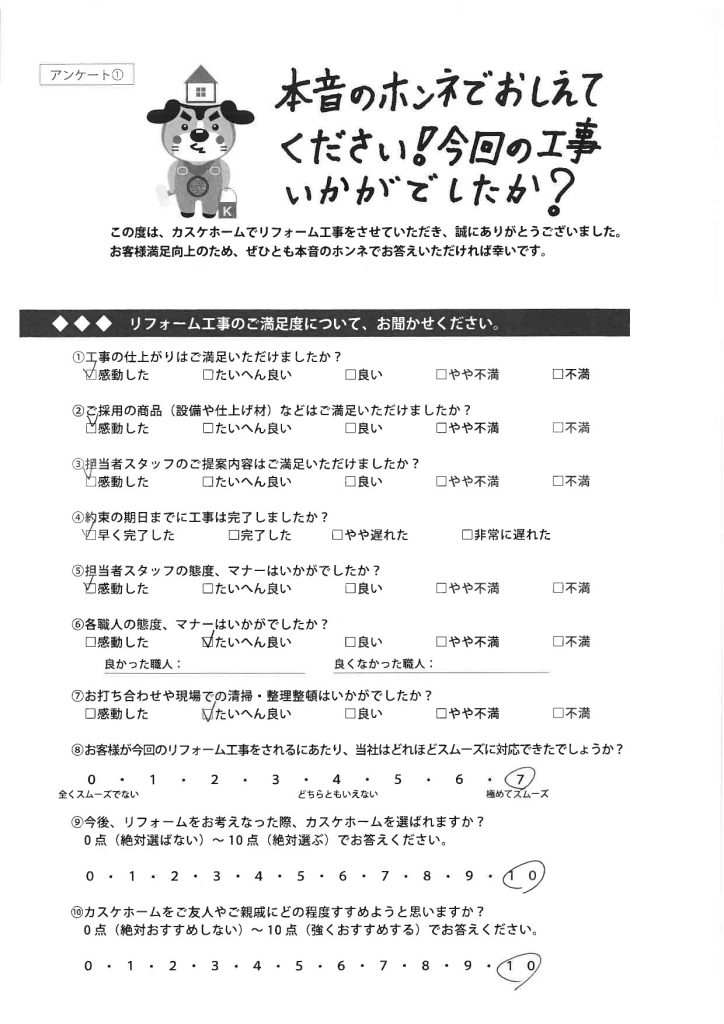 アンケート①
本音のホンネでおしえて
ください!今回の工事
いかがでしたか?
K
この度は、カスケホームでリフォーム工事をさせていただき、誠にありがとうございました。
お客様満足向上のため、ぜひとも本音のホンネでお答えいただければ幸いです。
◆◆◆ リフォーム工事のご満足度について、お聞かせください。
①工事の仕上がりはご満足いただけましたか?
☑感動した □たいへん良い □良い □やや不満 □不満
②ご採用の商品(設備や仕上げ材)などはご満足いただけましたか?
☑感動した □たいへん良い □良い □やや不満 □不満
③担当者スタッフのご提案内容はご満足いただけましたか?
☑感動した □たいへん良い □良い □やや不満 □不満
④約束の期日までに工事は完了しましたか?
☑早く完了した □完了した □やや遅れた □非常に遅れた
⑤担当者スタッフの態度、マナーはいかがでしたか?
☑感動した □たいへん良い □良い □やや不満 □不満
⑥各職人の態度、マナーはいかがでしたか?
□感動した ☑たいへん良い □良い □やや不満 □不満
良かった職人: 良くなかった職人:
⑦お打ち合わせや現場での清掃・整理整頓はいかがでしたか?
□感動した ☑たいへん良い □良い □やや不満 □不満
⑧お客様が今回のリフォーム工事をされるにあたり、当社はどれほどスムーズに対応できたでしょうか?
0 ・ 1 ・ 2 ・ 3 ・ 4 ・ 5 ・ 6 ・ 7
全くスムーズでない どちらともいえない 極めてスムーズ
⑨今後、リフォームをお考えなった際、カスケホームを選ばれますか?
0点(絶対選ばない)~10点(絶対選ぶ)でお答えください。
0 ・ 1 ・ 2 ・ 3 ・ 4 ・ 5 ・ 6 ・ 7 ・ 8 ・ 9 ・ 10
⑩カスケホームをご友人やご親戚にどの程度すすめようと思いますか?
0点(絶対おすすめしない)~10点(強くおすすめする)でお答えください。
0 ・ 1 ・ 2 ・ 3 ・ 4 ・ 5 ・ 6 ・ 7 ・ 8 ・ 9 ・ 10